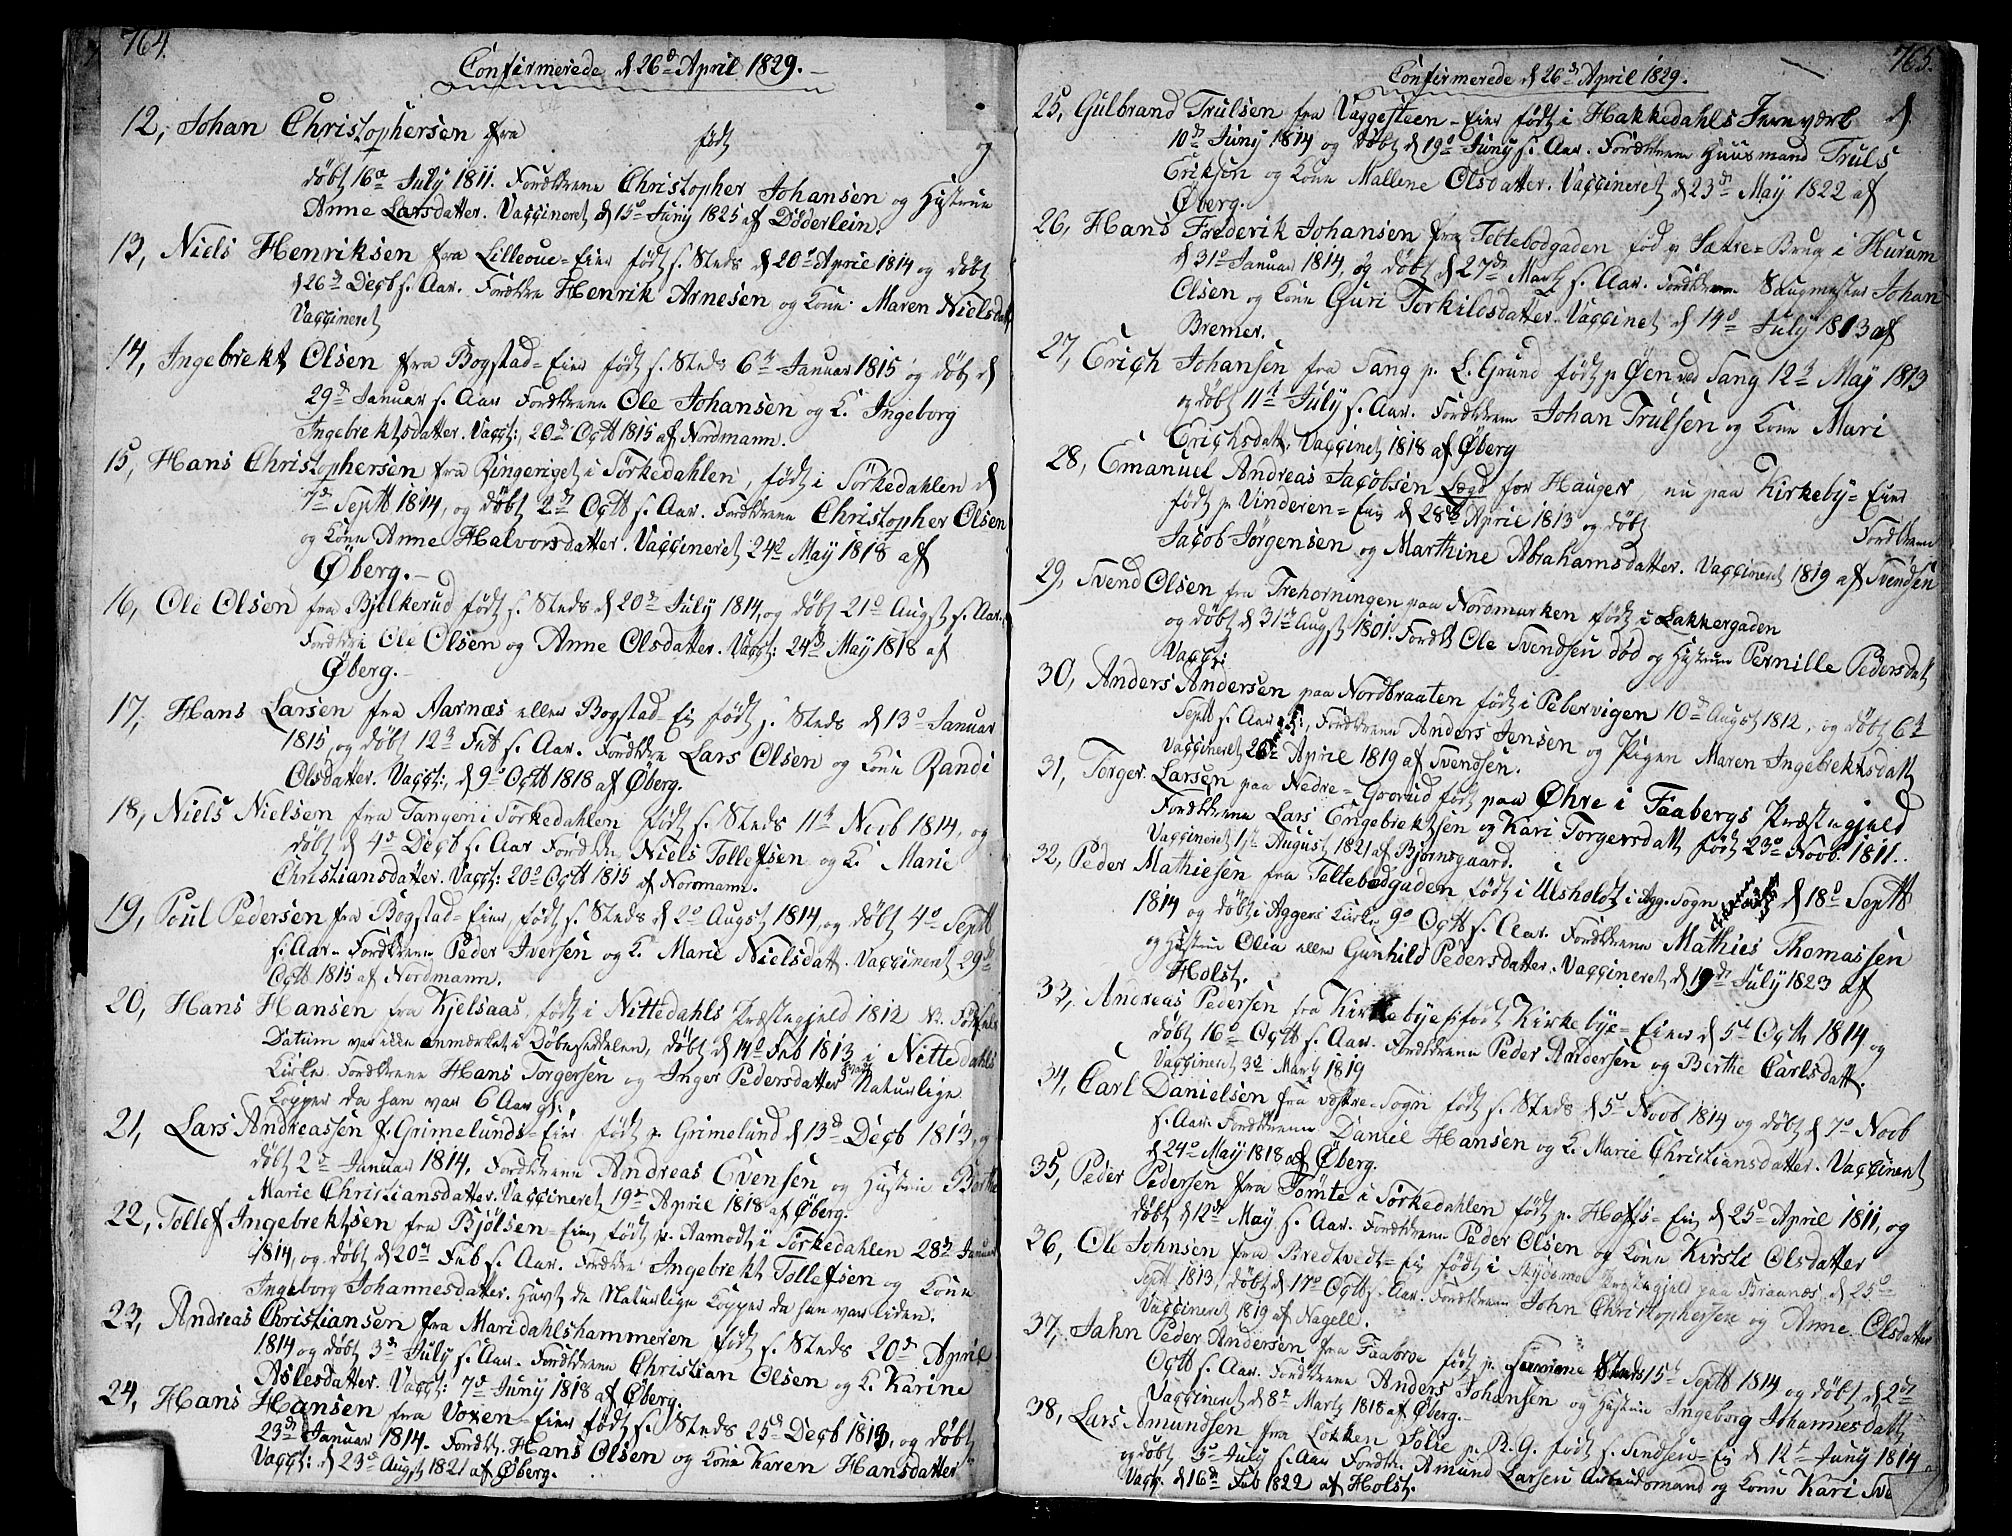 764.
Confirmerede d 26d April 1829. –
12, Johan Christophersen fra født og
døbt 16d July 1811. Forældrene Christopher Johansen og Hustrue
Anne Larsdatter. Vaccineret d 15d Juny 1825 af Döderlein.
13, Niels Henriksen fra Lilleoue-Eier født s. Steds d 20d April 1814 og døbt
d 26d Decb s. Aar. Forældre Henrik Arnesen og Kone Maren Nielsdatt
Vaccineret
14, Ingebrekt Olsen fra Bogstad-Eier født s. Steds 6te Januar 1815 og døbt d
29d Januar s. Aar Forældrene Ole Johansen og K. Ingeborg
Ingebrektsdatter. Vacct: 20d Octb 1815 af Nordmann.
15, Hans Christophersen fra Ringeriget i Sørkedahlen, født i Sørkedahlen d
7d Septb 1814, og døbt 2d Octb s. Aar. Forældrene Christopher Olsen
og Kone Anne Halvorsdatter. Vaccineret 24d May 1818 af
Øberg. –
16, Ole Olsen fra Bjelkerud født s. Steds d 20d July 1814, og døbt 21d Augst s. Aar.
Forældre Ole Olsen og Anne Olsdatter. Vacct: 24d May 1818 af
Øberg. –
17, Hans Larsen fra Aarnæs eller Bogstad-Ei født s. Steds d 13d Januar
1815, og døbt 12te Feb s. Aar. Forældre Lars Olsen og Kone Randi
Olsdatter. Vacct:, d 9d Octb 1818 af Øberg.
18, Niels Nielsen fra Tangen i Sørkedahlen født s. Steds 11te Novb 1814, og
døbt d 4d Decb s. Aar Forældre Niels Tollefsen og K. Marie
Christiansdatter. Vacct: 20d Octb 1815 af Normann.
19, Poul Pedersen fra Bogstad-Eier, født s. Steds d 2d Augst 1814, og døbt 4d Septb
s. Aar. Forældrene Peder Iversen og K. Marie Nielsdatt. Vaccineret 29d
Octb 1815 af Nordmann.
20, Hans Hansen fra Kjelsaas, født i Nittedahls Præstegjeld 1812 NB. Fødsels
Datum var ikke anmærket i Døbeseddelen, døbt d 14d Feb 1813 i Nittedahls
Kirke. Forældrene Hans Torgersen og Inger Pedersdatter havt Naturlige
Kopper da han var 6 Aar gl.
21, Lars Andreassen f. Grimelunds-Eier født p. Grimelund d 13d Decb 1813, og
døbt 2d Januar 1814. Forældrene Andreas Evensen og Hustrue Berthe
Marie Christiansdatter. Vaccineret 19d April 1818 af Øberg.
22, Tollef Ingebrektsen fra Bjølsen-Eier, født p. Aamodt i Sørkedahlen 28d Januar
1814, og døbt d 20d Feb s. Aar. Forældre Ingebrekt Tollefsen og Kone
Ingeborg Johannesdatter. Havt de Naturlige Kopper da han var liden.
23, Andreas Christiansen fra Maridahlshammeren født s. Steds 20d April
1814 og døbt 3d July s. Aar. Forældrene Christian Olsen og K. Karine
Aslesdatter. Vacct: 7d Juny 1818 af Øberg.
24, Hans Hansen fra Voxen-Eier født s. Steds 25d Decb 1813, og døbt
23d Januar 1814. Forældr. Hans Olsen og Kone Karen Hansdatter
Vacct: d 23d Augst 1821 af Øberg.
765.
Confirmerede d 26d April 1829.
25, Gulbrand Trulsen fra Vaggesteen-Eier født i Hakkedahls Jernværk d
10d Juny 1814 og døbt d 19d Juny s. Aar. Forældrene Huusmand Truls
Eriksen og Kone Mallene Olsdatter. Vaccineret d 23d May 1822 af
Øberg.
26, Hans Frederik Johansen fra Teltebodgaden fød p Sætre-Brug i Hurum
d 31d Januar 1814, og døbt d 27d Martz s. Aar. Forældrene Saugmester Johan
Olsen og Kone Guri Torkildsdatter. Vaccinet d 14d July 1813 af
Bremer.
27, Erich Johansen fra Sang p. L. Grund født p Øen ved Sang 12te May 1813
og døbt 11te July s. Aar. Forældrene Johan Trulsen og Kone Mari
Erichsdatt. Vaccinet 1818 af Øberg
28, Emanuel Andreas Jacobsen Lægd for Hauger, nu paa Kirkeby-Eier
født p. Vinderen-Eig d 28d April 1813 og døbt Forældrene
Jacob Jørgensen og Marthine Abrahamsdatter. Vaccineret 1819 af Svendsen
29, Svend Olsen fra Trehorningen paa Nordmarken født i Lakkergaden
og døbt d 31te Augst 1801. Forældr Ole Svendsen død og Hustrue Pernille Pedersdat
Vacci:
30, Anders Andersen paa Nordbraaten født i Pebervigen 10d Augst 1812, og døbt 6te
Septb s. Aar Forældrene Anders Jensen og Pigen Maren Ingebrektsdatt
Vaccineret 26d April 1819 af Svendsen.
31, Torger Larsen paa Nedre-Grorud født paa Øhre i Faabergs Præstegjeld
Forældrene Lars Engebrektsen og Kari Torgersdatt født 23d Novb. 1811.
Vaccineret 1ste August 1821 af Bjørnsgaard.
32, Peder Mathiesen fra Teltebodgaden født i Ulsholdt i Agg. Sogn d 18d Septb
1814 og døbt i Aggers Kirke 9d Octb s. Aar. Forældrene Mathies Thomassen
og Hustrue Olia eller Gunhild Pedersdatter. Vaccineret d 19de July 1823 af
Holst.
33, Andreas Pedersen fra Kirkebye født Kirkebye-Eier d 5d Octb 1814 og
døbt 16d Octb s. Aar. Forældrene Peder Andersen og Berthe Carlsdatt.
Vaccineret 3d Martz 1819
34, Carl Danielsen fra vestre-Sogn født s. Steds d 5d Novb 1814 og døbt d 7d Novb
s. Aar. Forældrene Daniel Hansen og K. Marie Christiansdatter. Vaccineret
d 24d May 1818 af Øberg.
35, Peder Pedersen fra Tomte i Sørkedahlen født p. Hoffs-Eig d 25d April 1811, og
døbt d 12d May s. Aar. Forældrene Peder Olsen og Kone Kirsti Olsdatter
36, Ole Johnsen fra Bredtvedt-Eig født i Præstegjeld paa Braanæs d 25d
Septb 1813, døbt d 17d Octb s. Aar. Forældrene John Christophersen og Anne Olsdatter
Vaccineret 1819 af Nagell.
37, Jahn Peder Andersen fra Faabroe født p. samme Steds 15d Septb 1814 og døbt d 2d
Octb s. Aar. Forældrene Anders Johansen og Hustrue Ingeborg Johannesdatt
Vaccineret d 8d Martz 1818 af Øberg. –
38, Lars Amundsen fra Løkken Solie p. R. G. født s. Eig d 12te Juny 1814
og døbt 3d July s. Aar Forældr. Amund Larsen Arbeidsmand og Kone Kari
Vacc. d 16d Feb 1822 af Holst.